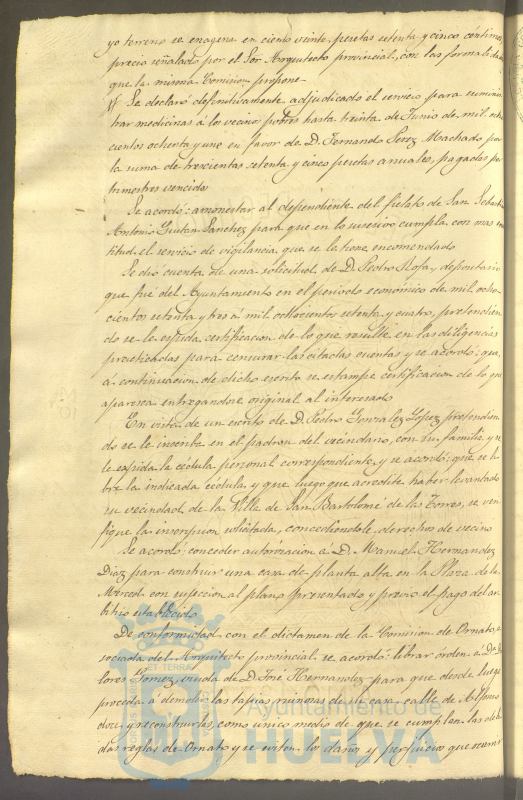 yo terreno se enagena en ciento veinte pesetas setenta y cinco céntimos
precio señalado por el Sor. Arquitecto provincial, con las formalidades
que la misma Comision propone
Se declaró definitivamente adjudicado el servicio para suminis
trar medicinas á los vecinos pobres hasta treinta de Junio de mil ocho
cientos ochenta y uno en favor de D. Fernando Perez Machado por
la suma de trescientas setenta y cinco pesetas anuales, pagadas por
trimestres vencidos
Se acordó: amonestar al dependiente del fielato de San Sebastian
Antonio Sanchez para que en lo sucesivo cumpla con mas exac
titud el servicio de vigilancia que se le tiene encomendado
Se dió cuenta de una solicitud de D. Pedro Rofa, depositario
que fué del Ayuntamiento en el periodo economico de mil ocho
cientos setenta y tres á mil ochocientos setenta y cuatro, pretendien
do se le espida certificacion de lo que resulte en las diligencias
practicadas para censurar las citadas cuentas y se acordó: que,
á continuacion de dicho escrito se estampe certificacion de lo que
aparezca entregandose original al interesado
En vista de un escrito de D. Pedro Gonzalez Lopez pretendien
do se le inscriba en el padron del vecindario, con su familia y se
le espida la cédula personal correspondiente, y se acordó: que se li
bre la indicada cédula y que luego que acredite haber levantado
su vecindad de la Villa de San Bartolomé de las Torres, se veri
fique la inscripcion solicitada, concediendole derechos de vecino
Se acordó: conceder autorizacion a D. Manuel Hernandez
Diaz para construir una casa de planta alta en la Plaza de la
Merced con sujecion al plano presentado y previo el pago del ar
bitrio establecido
De conformidad con el dictamen de la Comision de Ornato, a
sociada del Arquitecto provincial se acordó: librar órden a Do
lores Gomez, viuda de D. José Hernandez para que desde luego
proceda á demoler las tapias ruinosas de su casa calle de Alfonso
doce y reconstruirlas, como único medio de que se cumplan las cita
das reglas de Ornato y se eviten los daños y perjuicios que ocurrir
ET TERRÆ
Ayuntamiento de
HUELVA